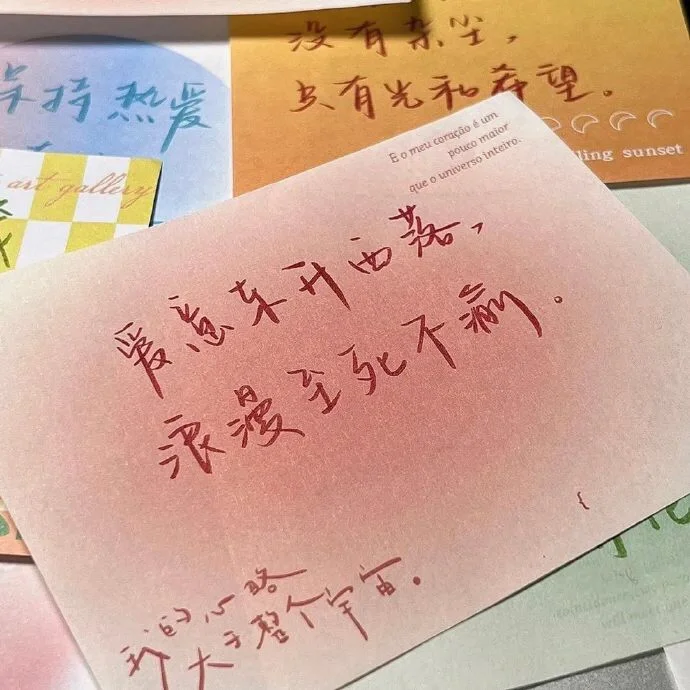 没有杂尘，
只有光和希望。
保持热爱
ling sunset
art gallery
E o meu coração é um
pouco maior
que o universo inteiro.
爱意东升西落，
浪漫至死不渝.
我的心略
大于整个宇宙。